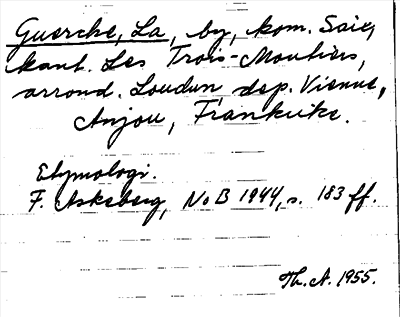 Guerche, La, by, kom. Saix,
kant. Les Trois-Moutiers,
arrond. Loudun dep. Vienne,
Anjou, Frankrike.
Etymologi.
F. Askeberg, NoB 1944, s. 183 ff.
Th. A. 1955.